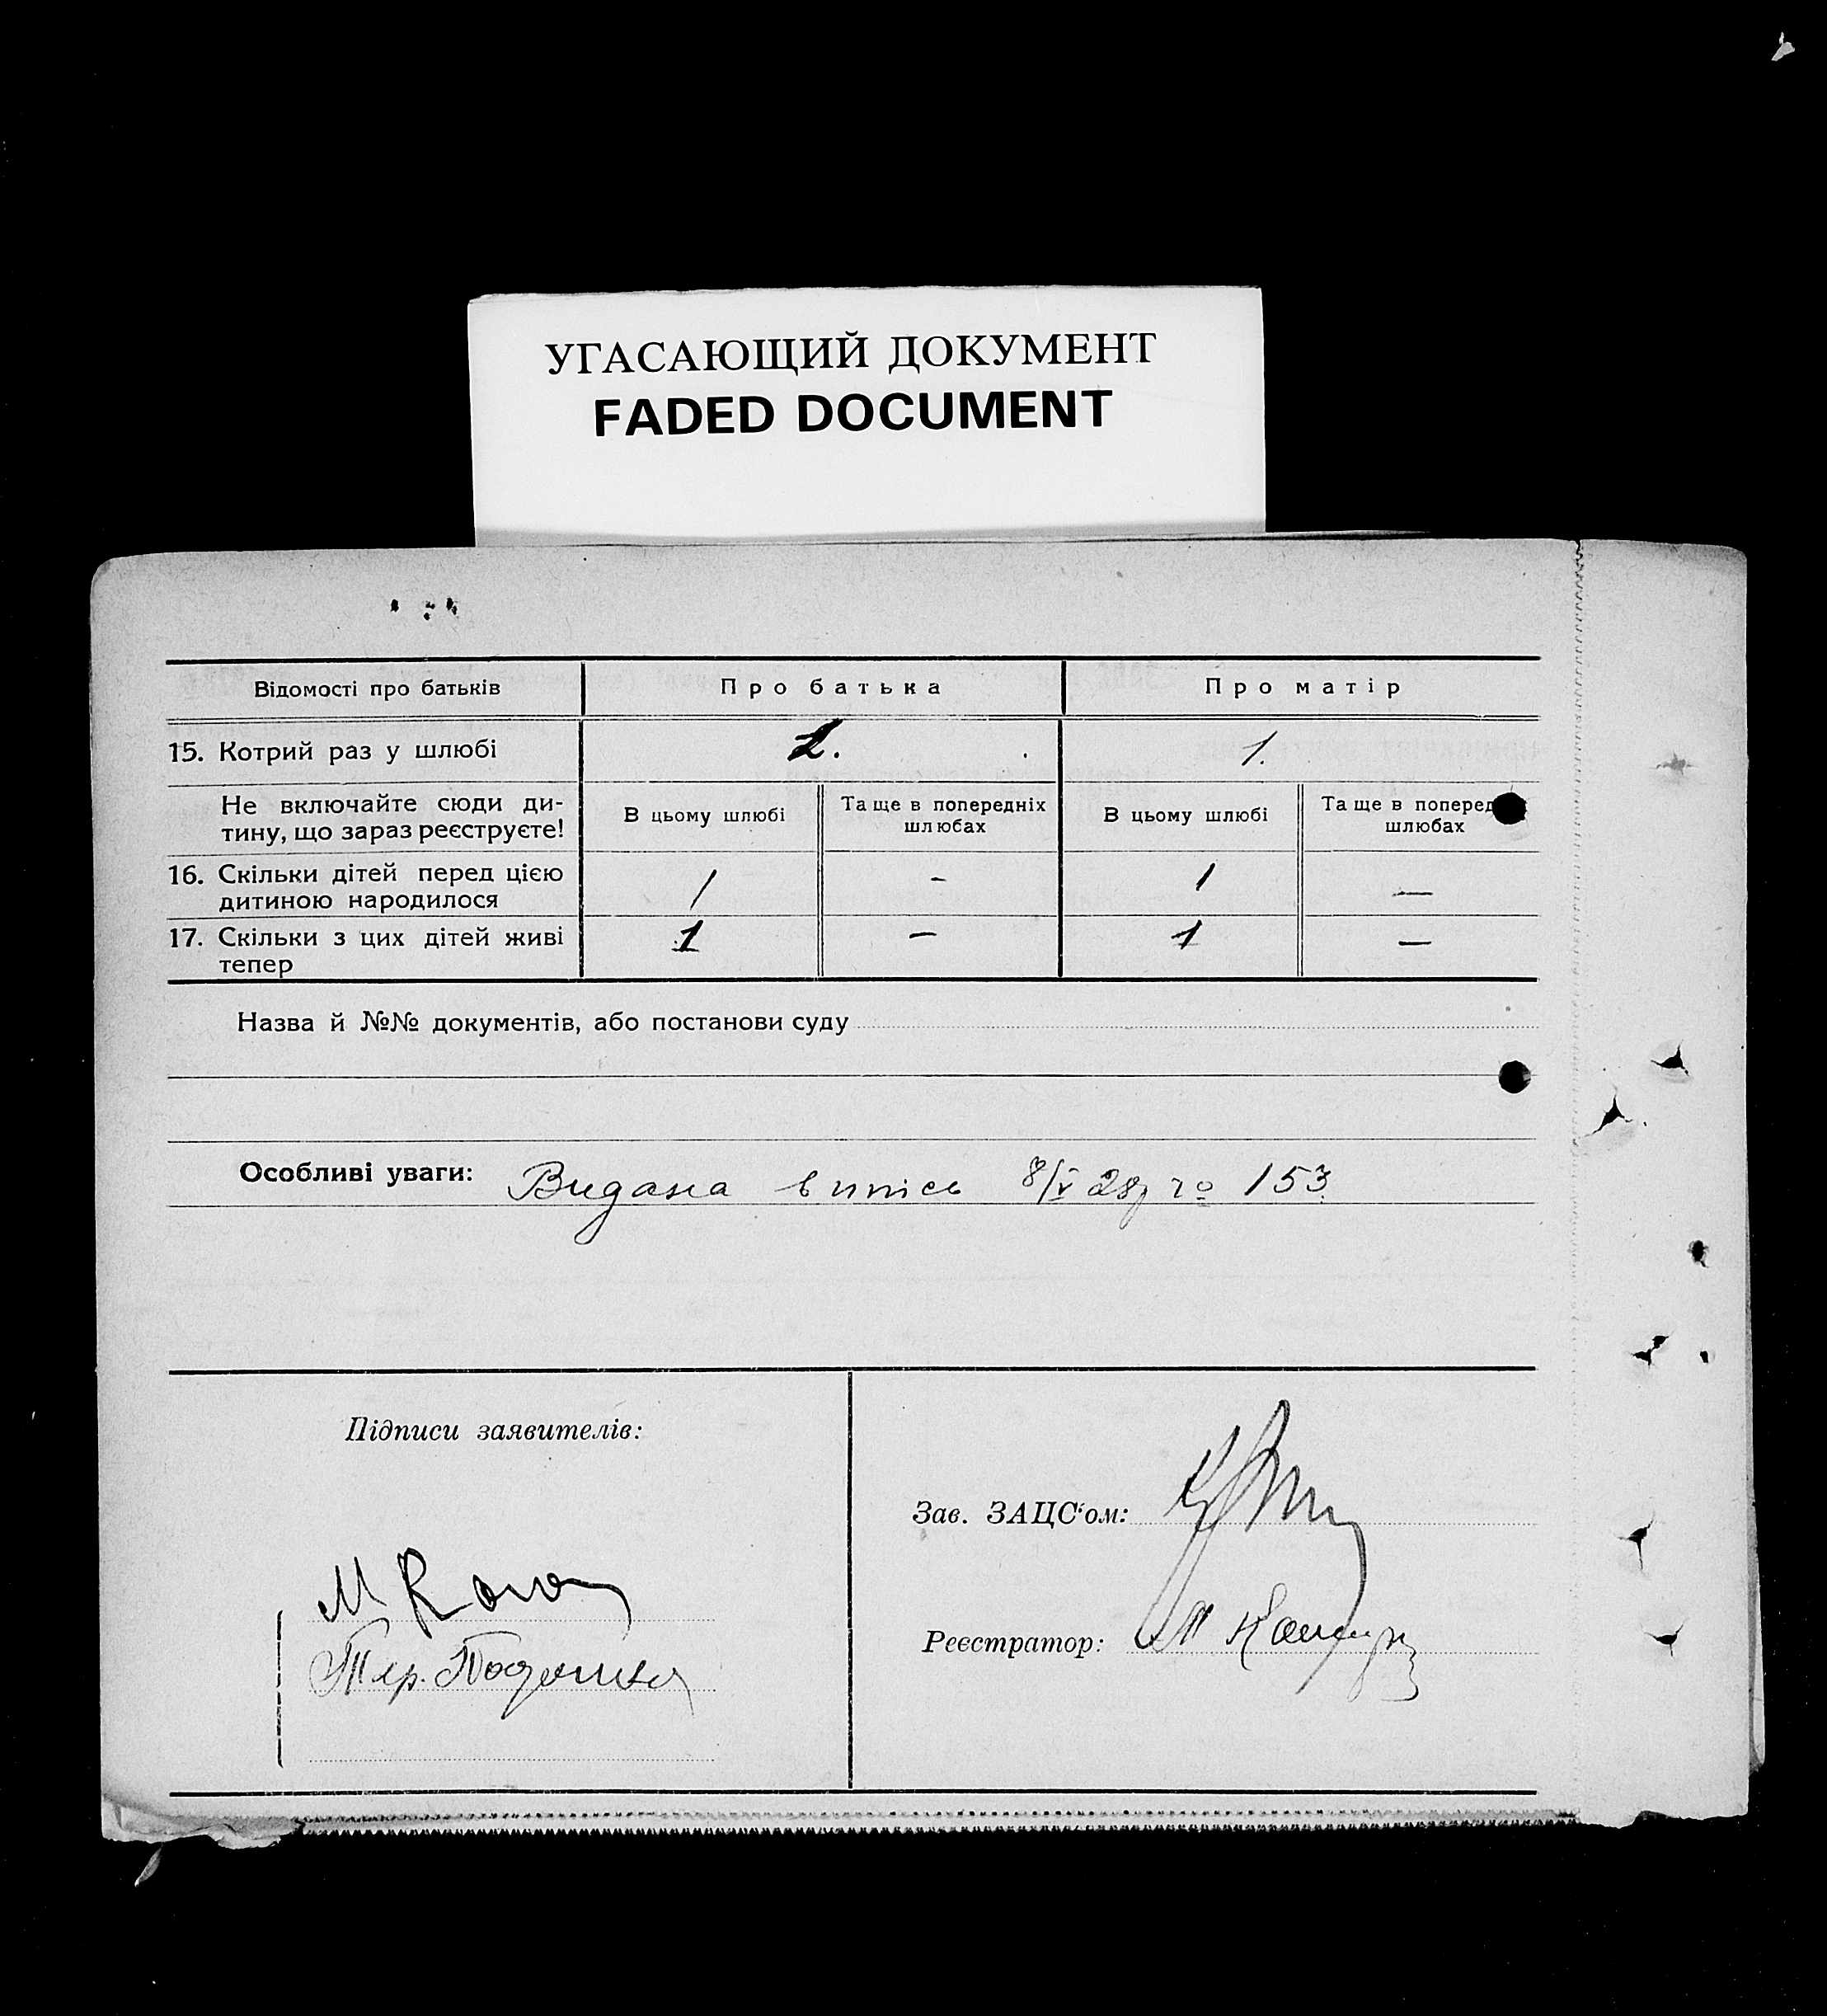 УГАСАЮЩИЙ ДОКУМЕНТ
FADED DOCUMENT
Відомості про батьків Про батька Про матір
15. Котрий раз у шлюбі 2. 1.
Не включайте сюди ди-
тину, що зараз реєструєте!
В цьому шлюбі
Та ще в попередніх
шлюбах
В цьому шлюбі
Та ще в поперед
шлюбах
16. Скільки дітей перед цією
дитиною народилося
1 - 1 —
17. Скільки з цих дітей живі
тепер
1 — 1 —
Назва й №№ документів, або постанови суду
Особливі уваги: Видана випісь 8/V 28 153
Підписи заявителів:
Зав. ЗАЦС'ом:
Реєстратор: